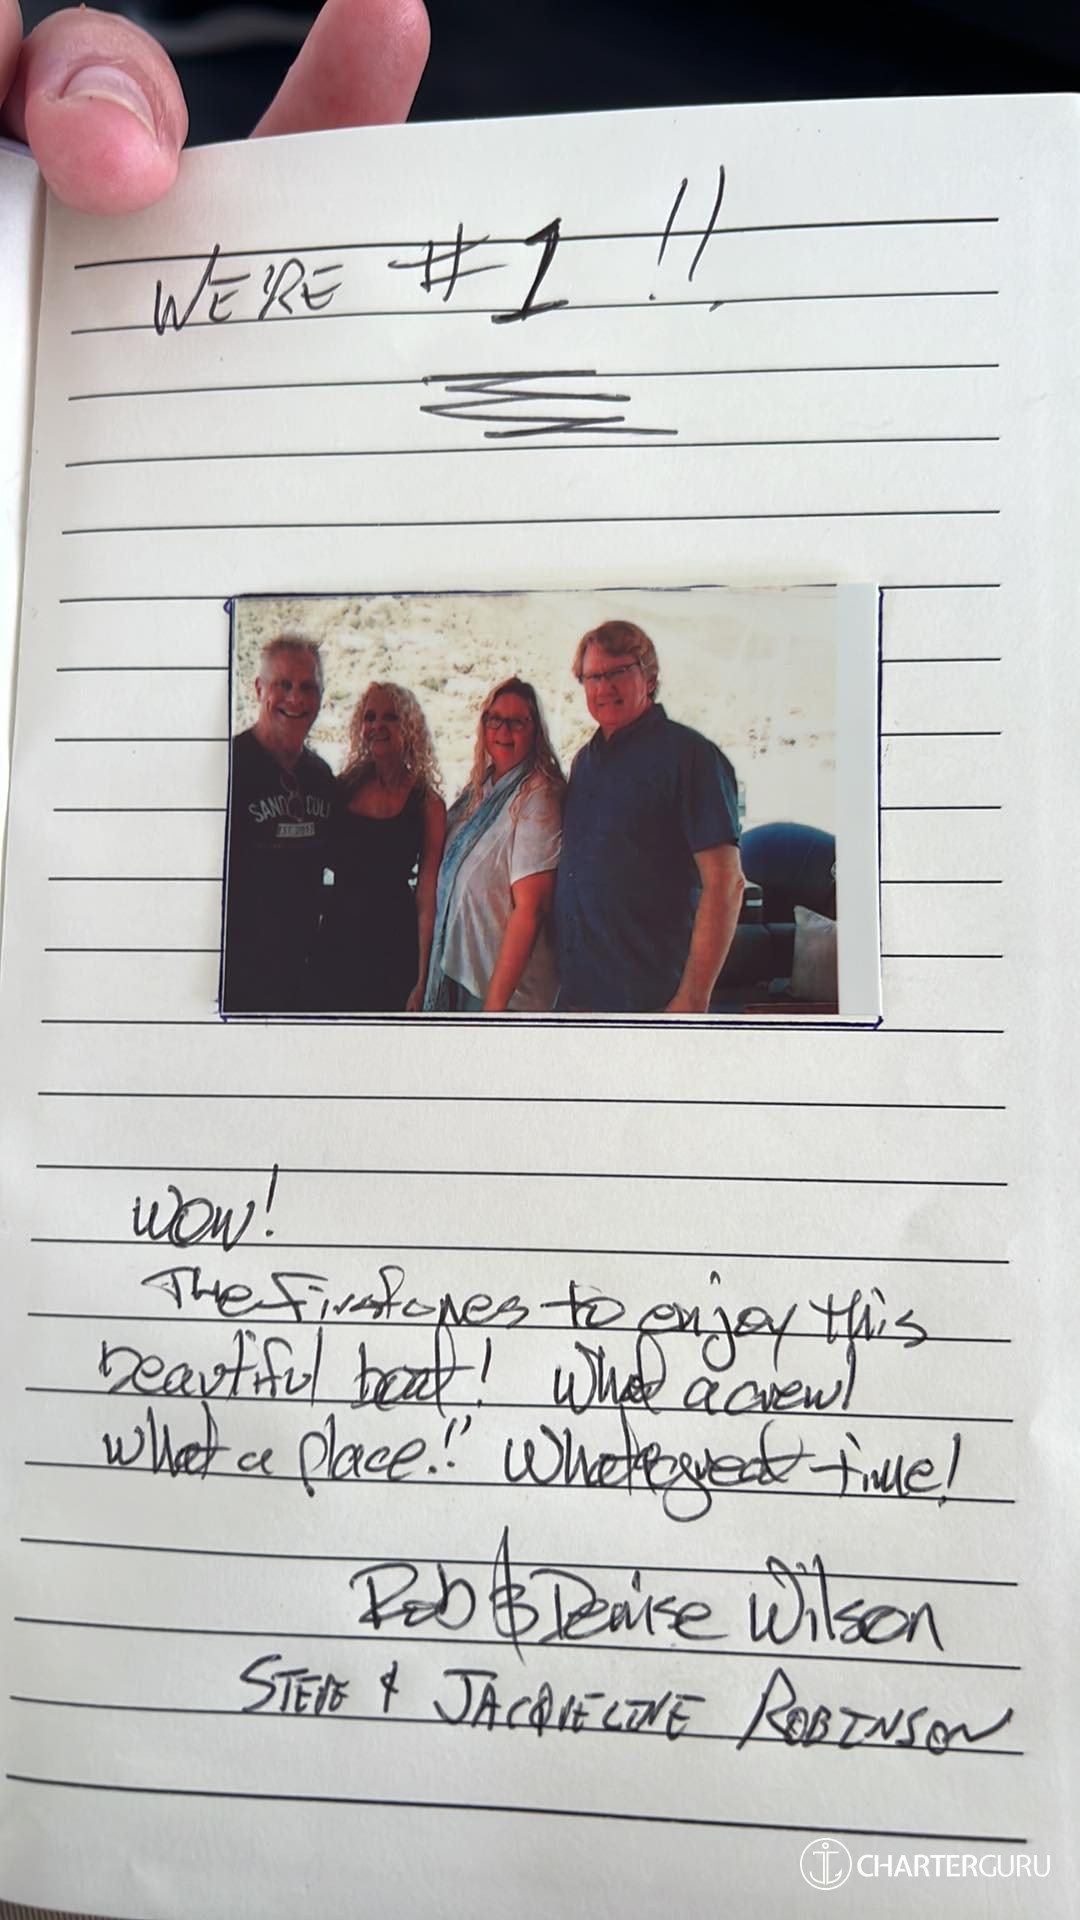 WE'RE #1 !!
SAND DOL
EST. 2017
WOW!
The First ones to enjoy this
beautiful boat! What a crew!
what a place!! What a great time!
Rob & Denise Wilson
STEVE & JACQUELINE ROBINSON
CHARTERGURU